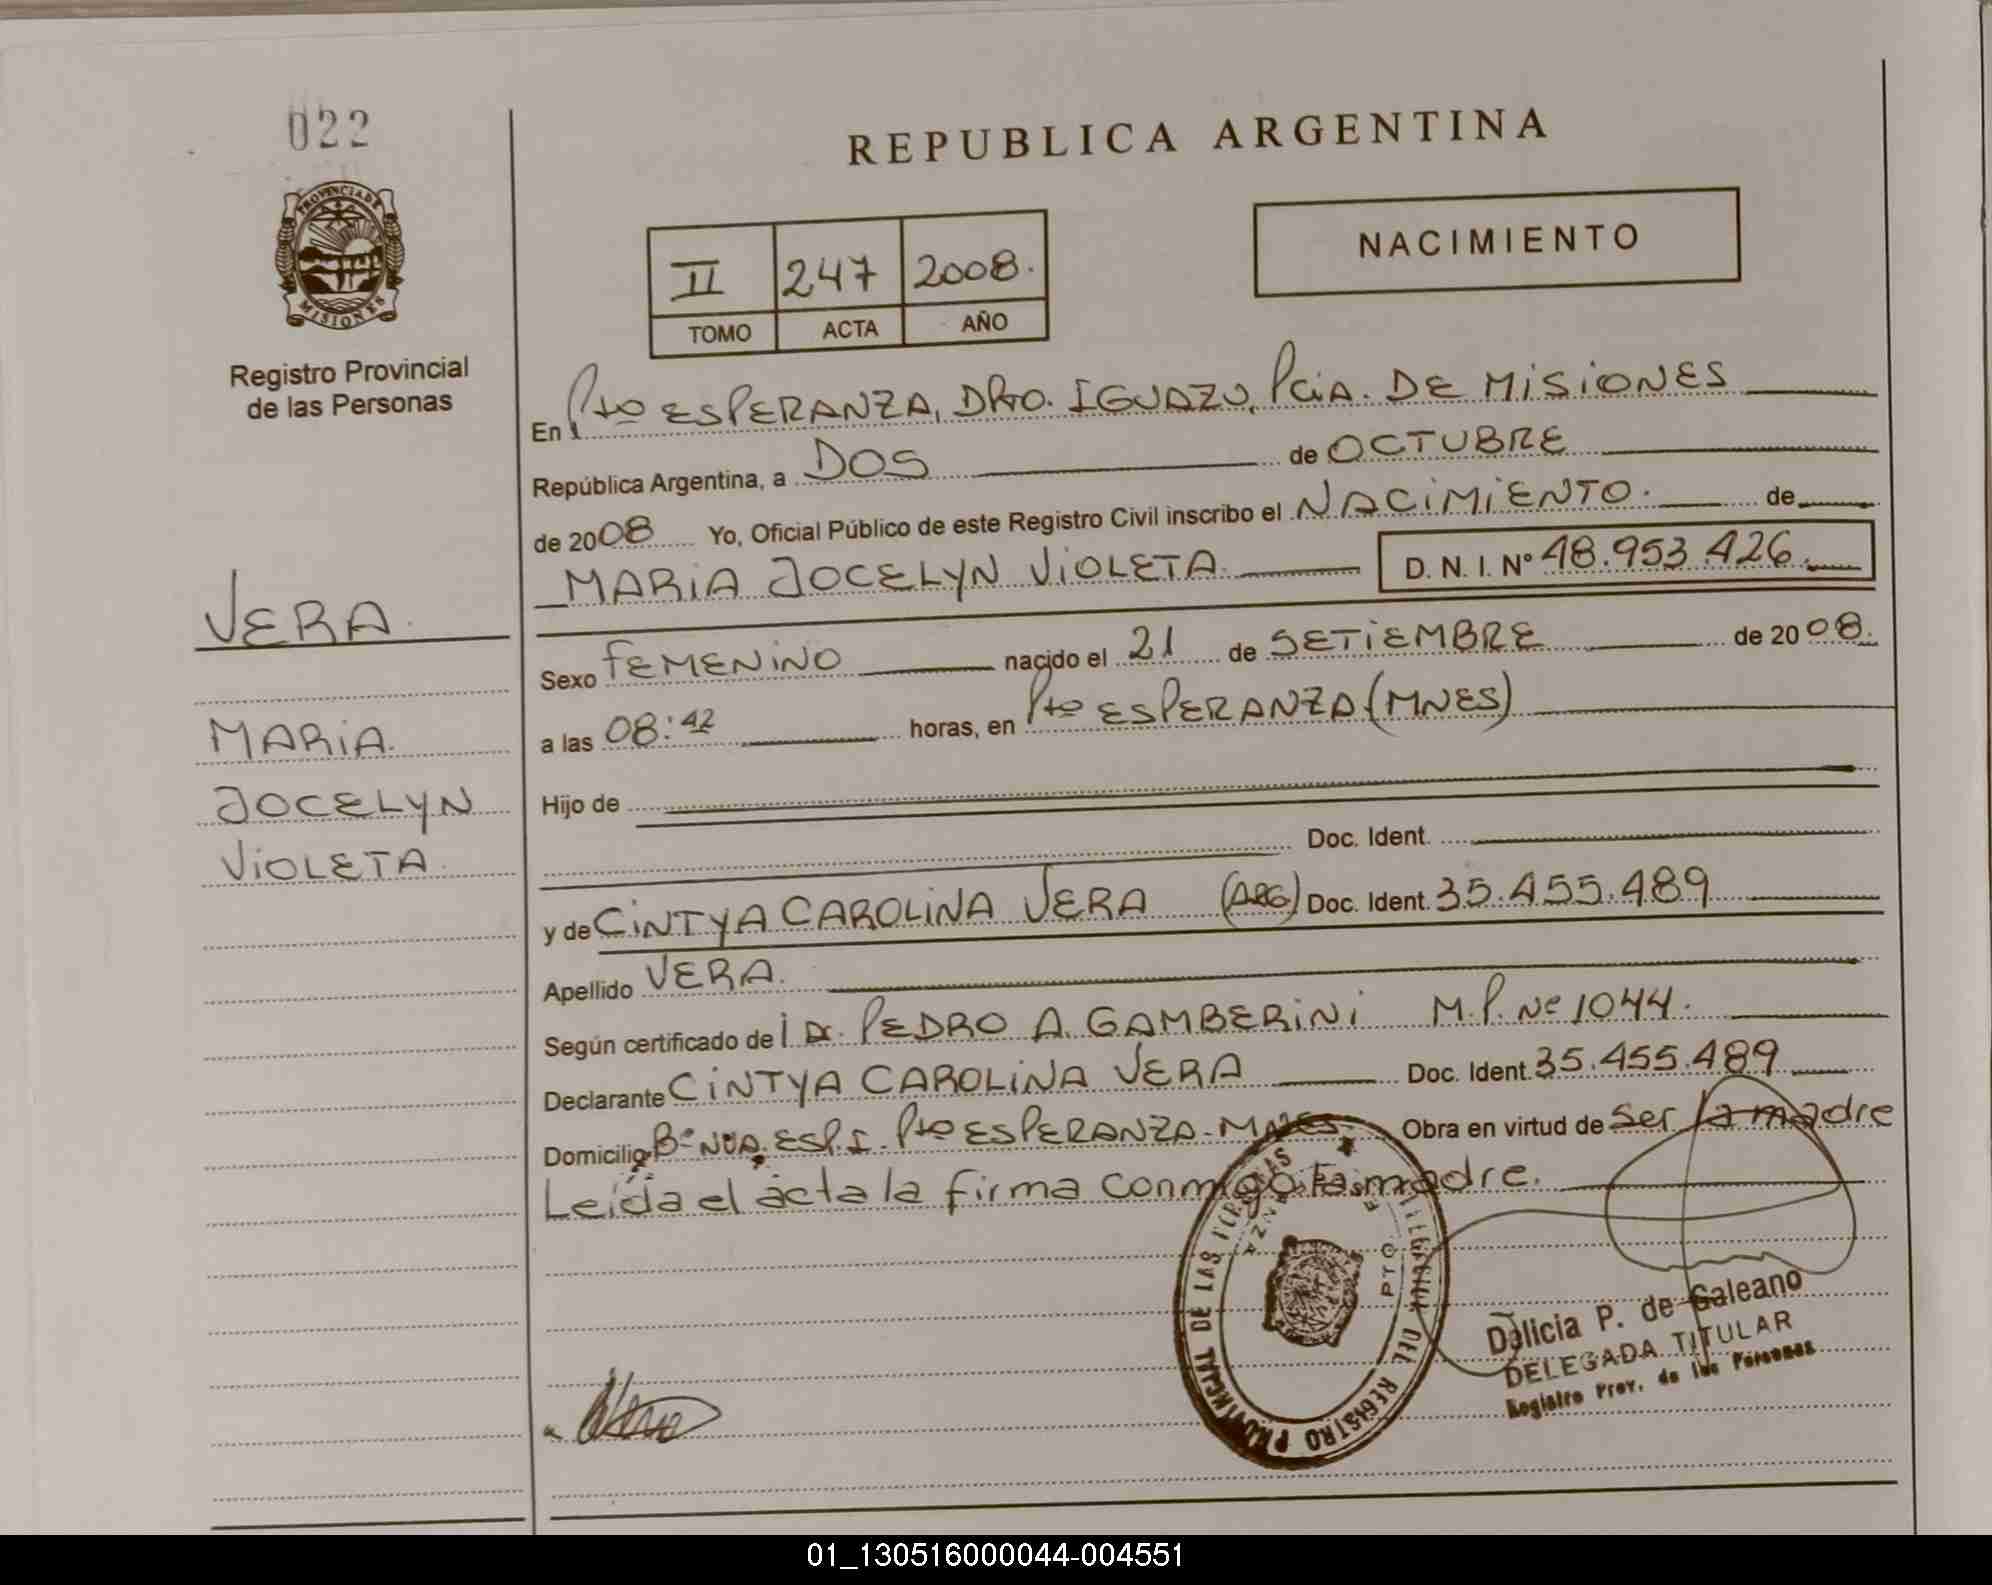 022
PROVINCIA DE
MISIONES
Registro Provincial
de las Personas
VERA
MARIA
JOCELYN
VIOLETA
REPUBLICA ARGENTINA
II 247 2008.
TOMO ACTA AÑO
NACIMIENTO
En Pto ESPERANZA, DPTO. IGUAZU, PCiA. DE MISIONES
República Argentina, a DOS de OCTUBRE
de 2008 Yo, Oficial Público de este Registro Civil inscribo el NACIMIENTO. de
MARIA JOCELYN VIOLETA D. N. I. Nº 48.953.426.
Sexo FEMENINO nacido el 21 de SETIEMBRE de 2008.
a las 08:42 horas, en Pto ESPERANZA (MNES)
Hijo de
Doc. Ident.
y de CINTYA CAROLINA VERA (ARG) Doc. Ident. 35.455.489
Apellido VERA.
Según certificado de Dr. PEDRO A. GAMBERINI M.P. Nº 1044.
Declarante CINTYA CAROLINA VERA Doc. Ident. 35.455.489
Domicilio Bº NVA. ESP. I. Pto ESPERANZA - MNES Obra en virtud de ser la madre
Leída el acta la firma conmigo la madre.
DELEGACION DEL REGISTRO PROVINCIAL DE LAS PERSONAS
PTO
Dalicia P. de Galeano
DELEGADA TITULAR
Registro Prov. de las Personas
01_130516000044-004551